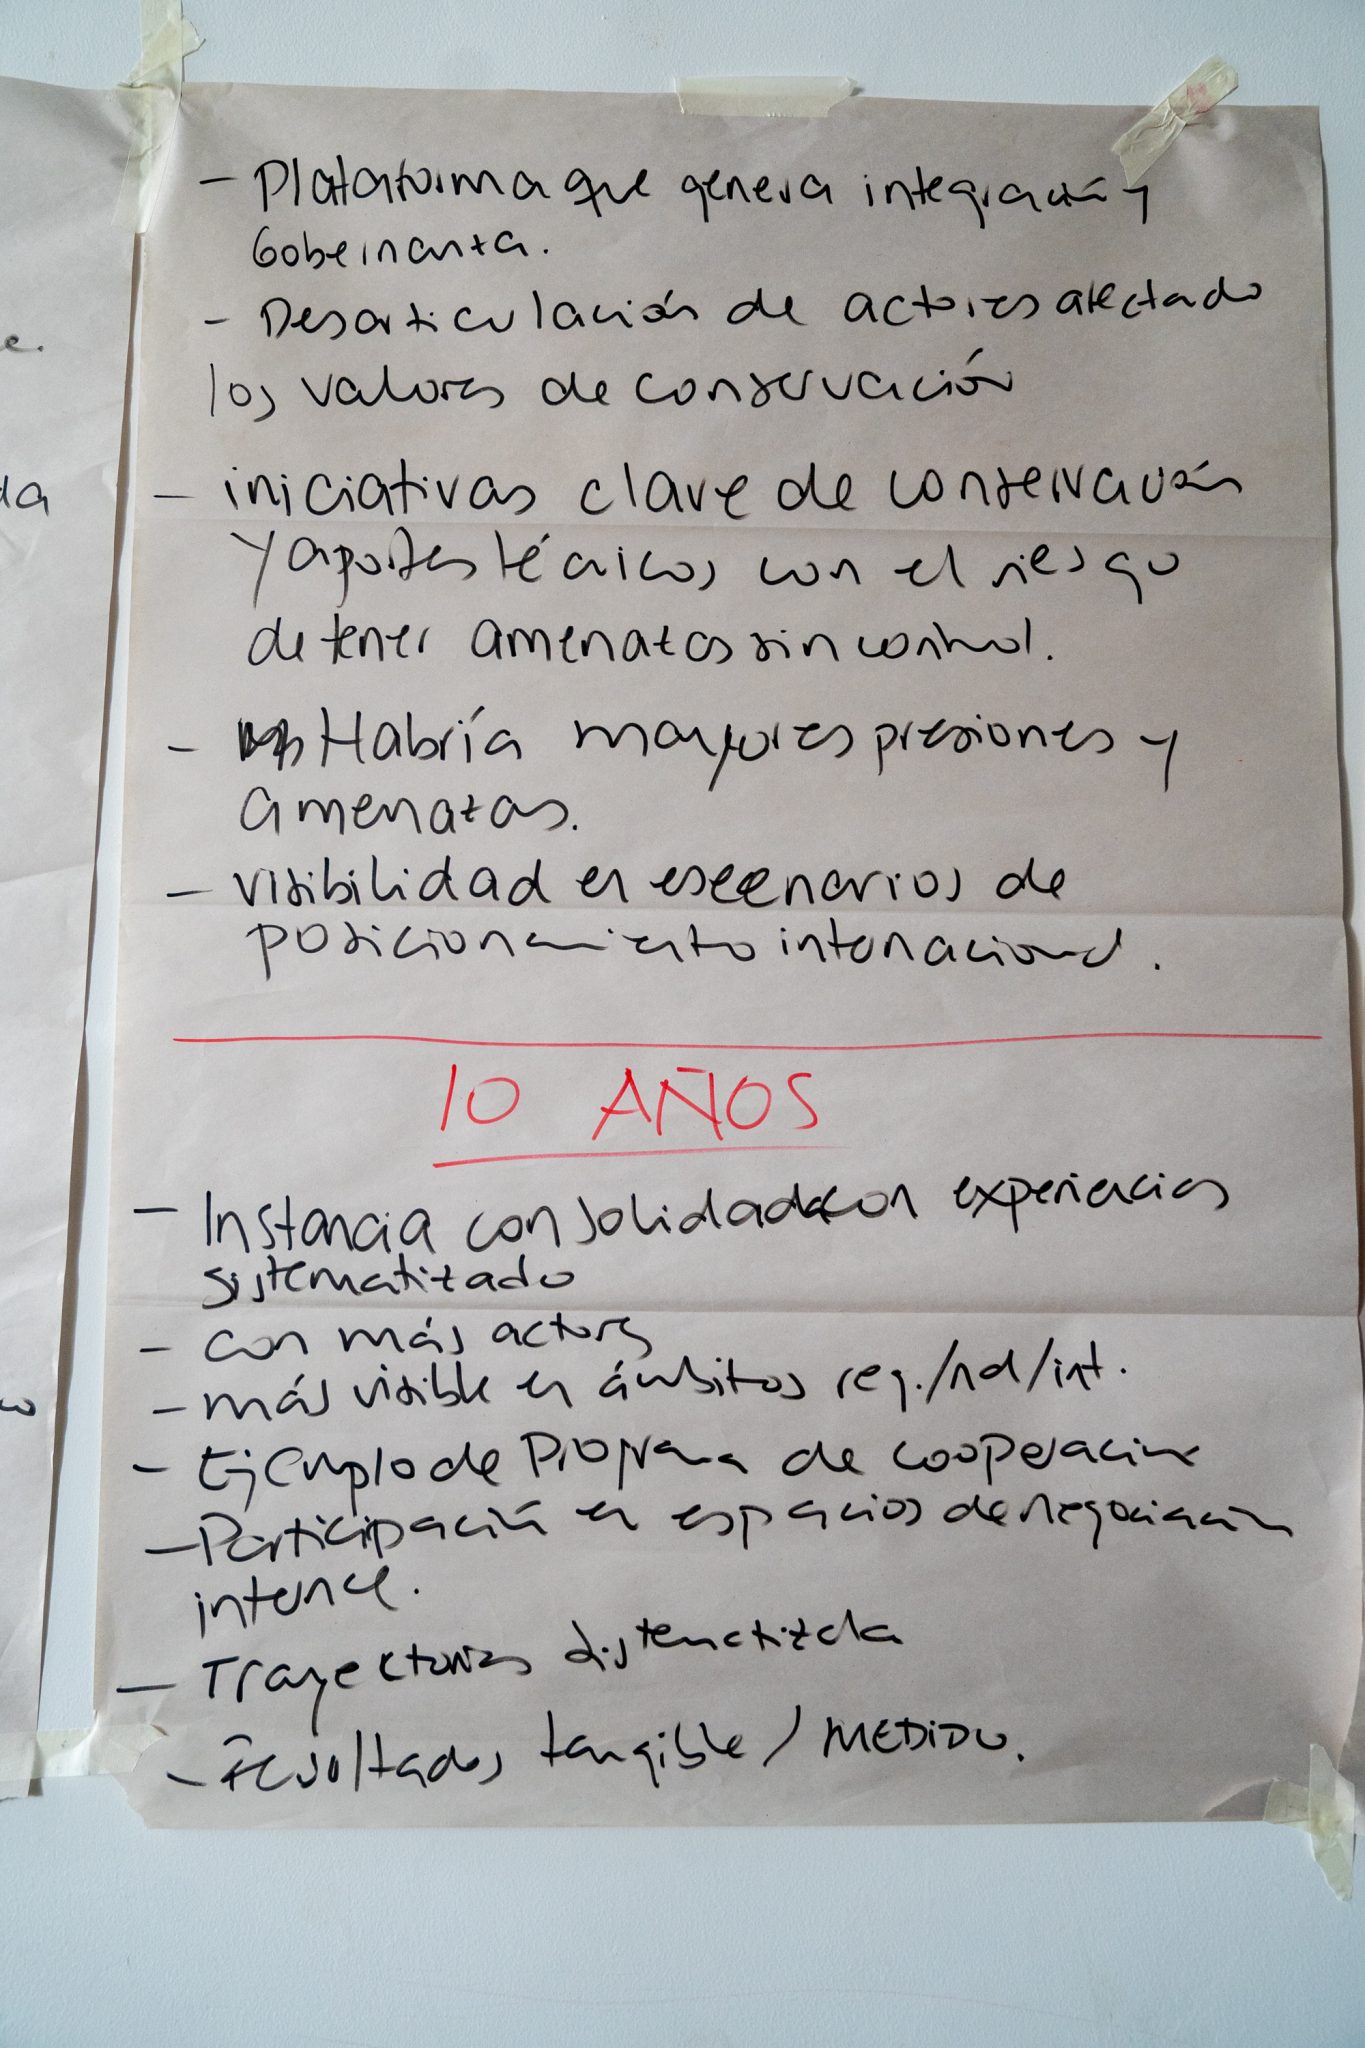 - Plataforma que genera integración y
Gobernanza.
- Desarticulación de actores afectado
los valores de conservación
- iniciativas clave de conservación
y aportes técnicos con el riesgo
de tener amenazas sin control.
- Habría mayores presiones y
amenazas.
- visibilidad en esceenarios de
posicionamiento internacional.
10 AÑOS
- Instancia consolidada con experiencias
sistematizado
- con más actores
- más visible en ámbitos reg./nal/int.
- Ejemplo de Programa de cooperación
- Participación en espacios de negociación
internal.
- Trayectorias sistematizada
- Resultados tangible / MEDIDO.
e.
da